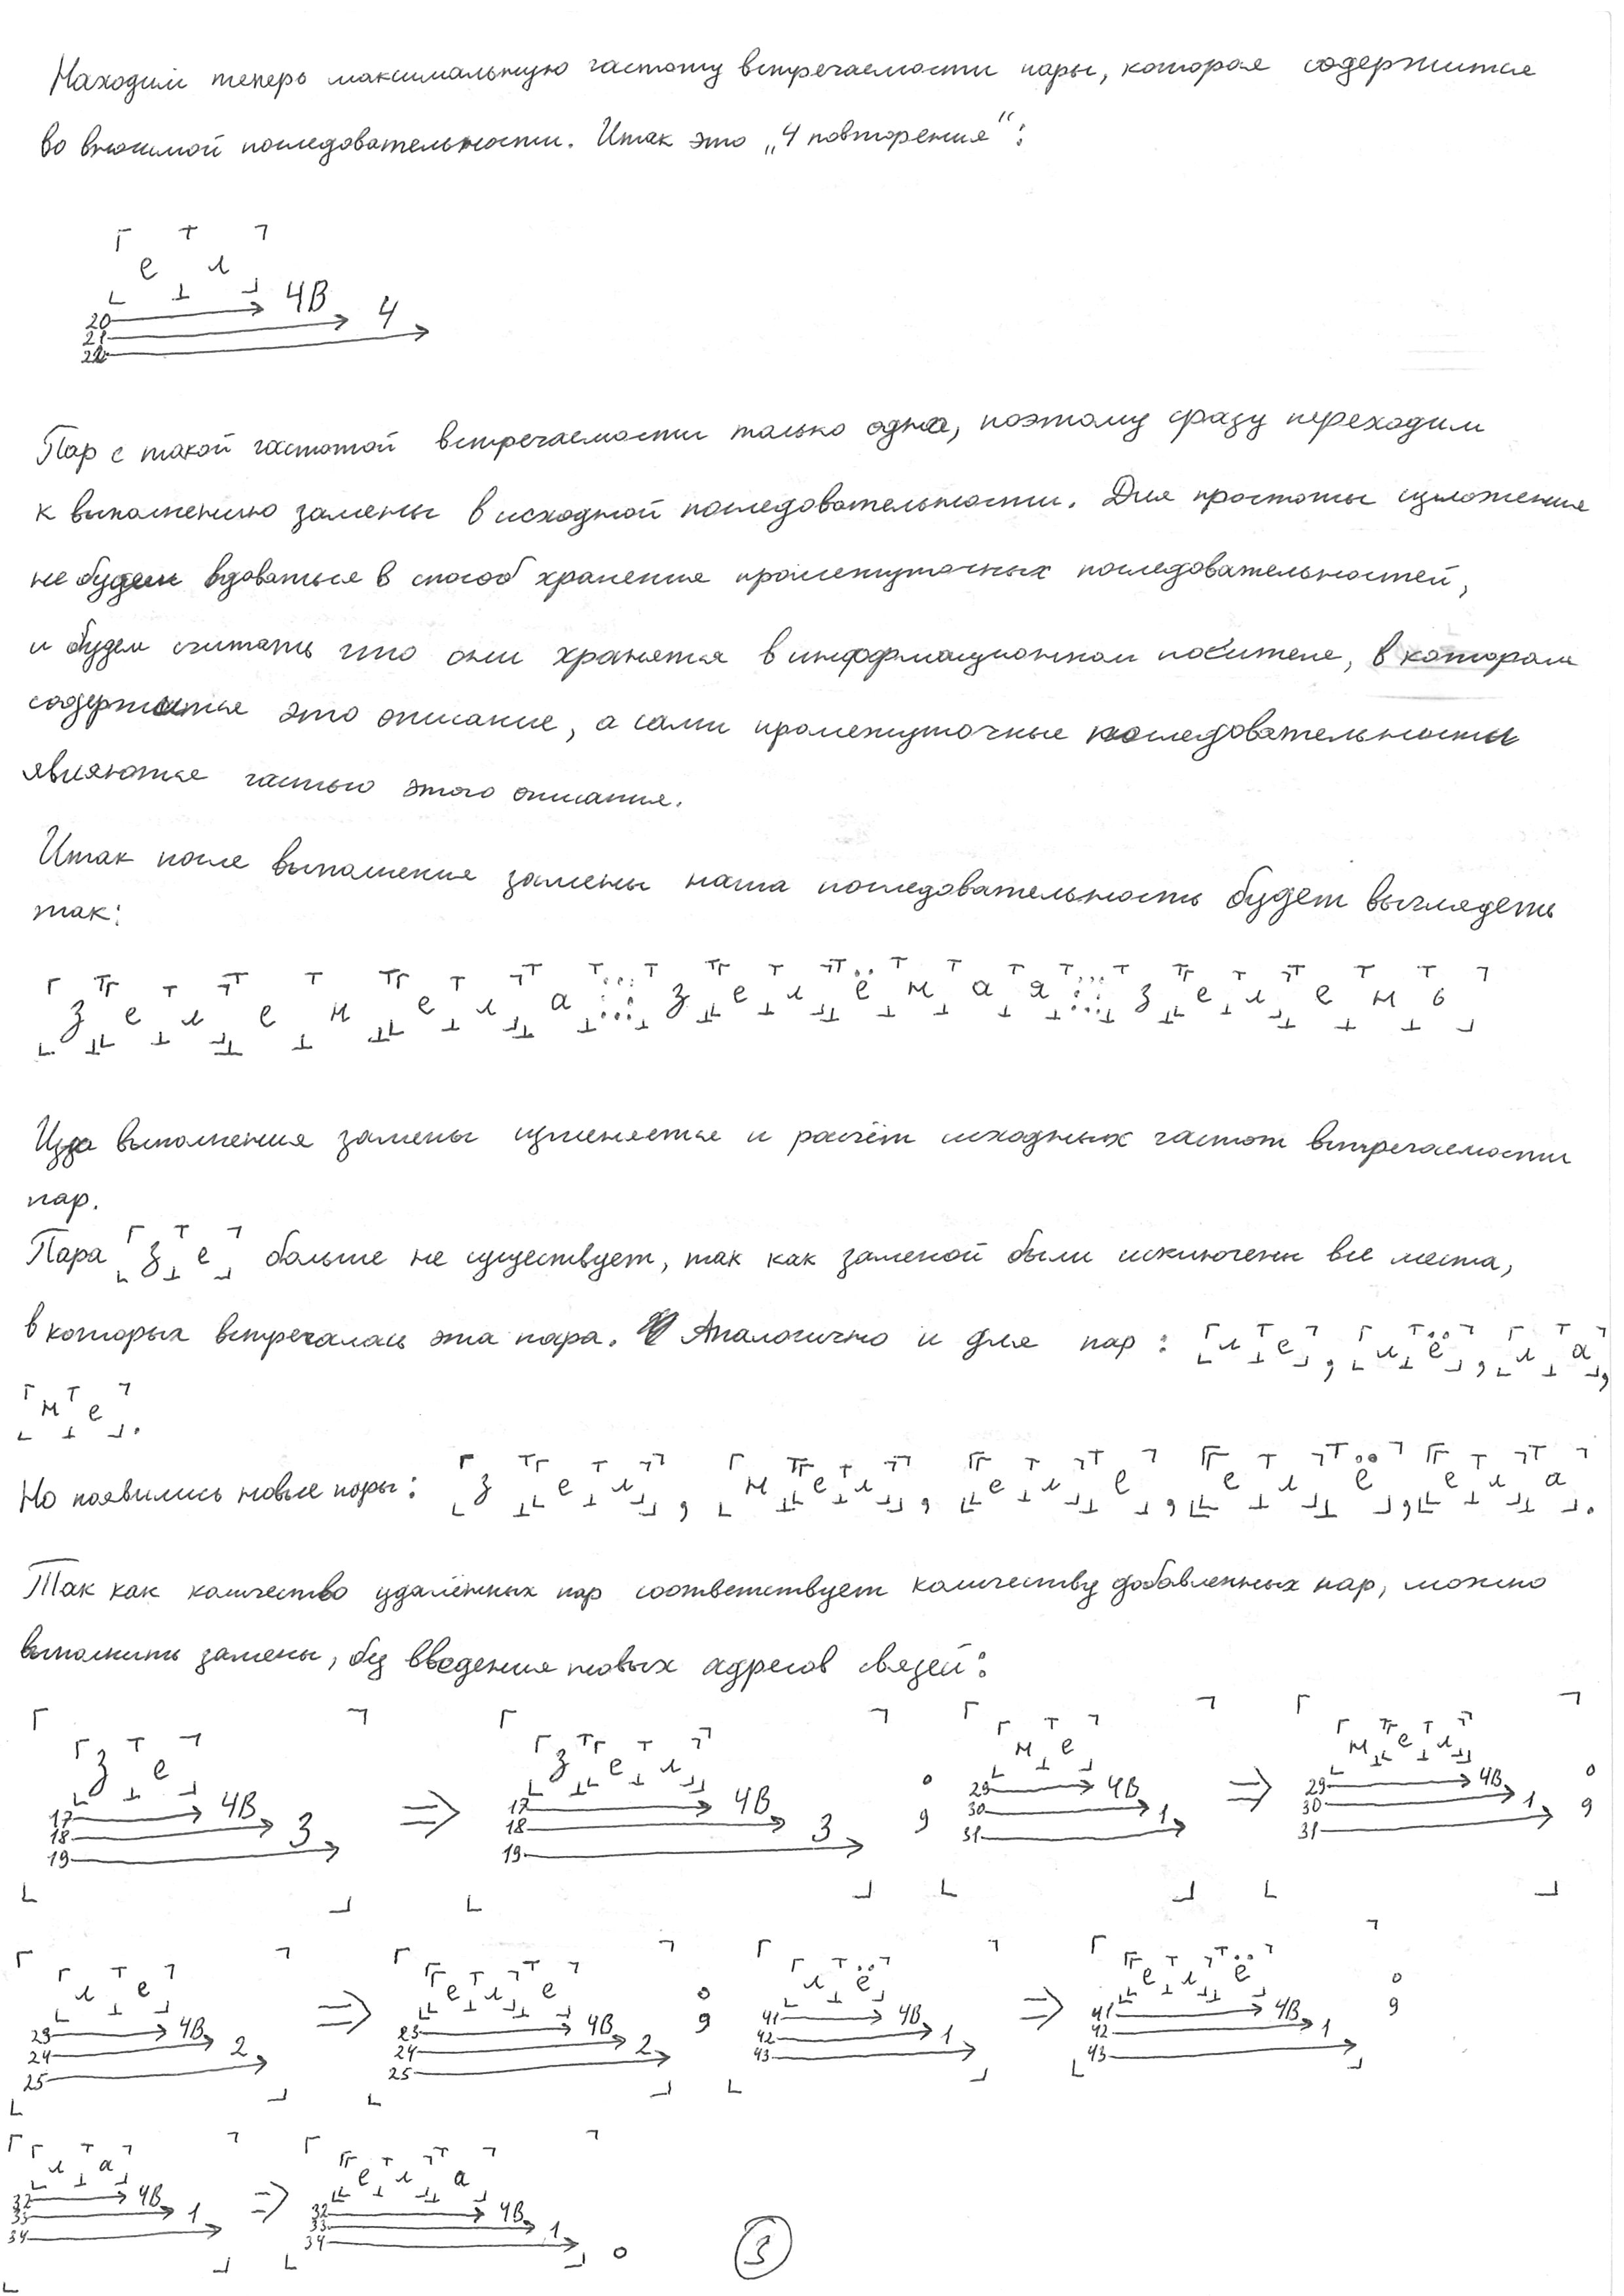 Находим теперь максимальную частоту встречаемости пары, которая содержится
во вносимой последовательности. Итак это „4 повторения“:
е л
20 4В
21 4
22
Пар с такой частотой встречаемости только одна, поэтому сразу переходим
к выполнению замены в исходной последовательности. Для простоты изложения
не будем вдаваться в способ хранения промежуточных последовательностей,
и будем считать что они хранятся в информационном носителе, в котором
содержится это описание, а сами промежуточные последовательности
являются частью этого описания.
Итак после выполнения замены наша последовательность будет выглядеть
так:
з е л е н е л а з е л ё н а я з е л е н ь
Из-за выполнения замены изменяется и расчёт исходных частот встречаемости
пар.
Пара з е больше не существует, так как заменой были исключены все места,
в которых встречалась эта пара. Аналогично и для пар: л е , л ё , л а ,
н е .
Но появились новые пары: з е л , н е л , е л е , е л ё , е л а .
Так как количество удалённых пар соответствует количеству добавленных пар, можно
выполнить замены, без введения новых адресов связей:
з е ⇒ з е л ; н е ⇒ н е л ;
17 4В 17 4В 29 4В 29 4В
18 3 18 3 30 1 30 1
19 19 31 31
л е ⇒ е л е ; л ё ⇒ е л ё ;
23 4В 23 4В 41 4В 41 4В
24 2 24 2 42 1 42 1
25 25 43 43
л а ⇒ е л а
32 4В 32 4В
33 1 33 1
34 34 .
3